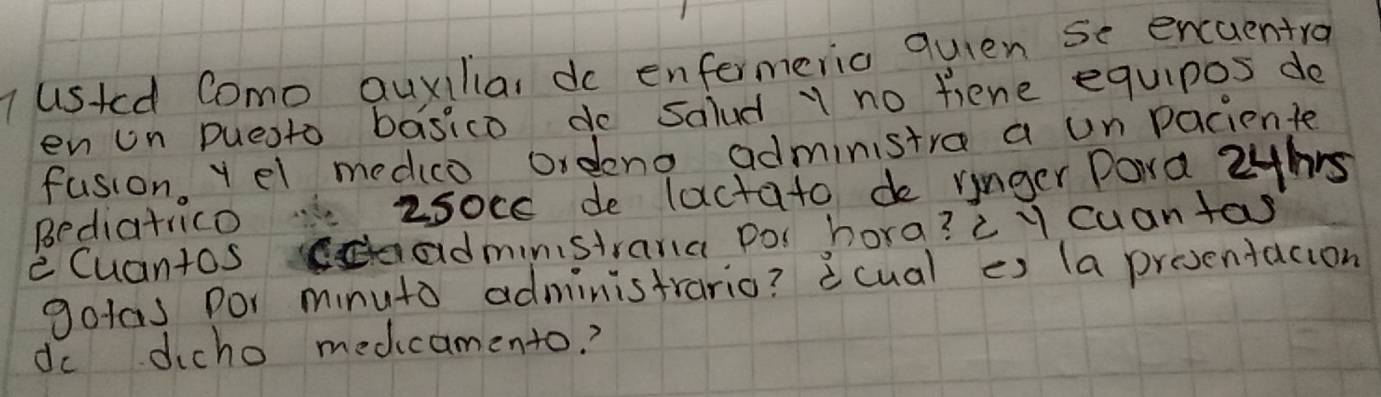 1 usted Como auxiliar de enfermeria quien se encuentra
en un puesto basico de Salud y no tiene equipos de
fusion. y el medico ordena administra a un paciente
Pediatrico 250cc de lactato de ringer para 24hrs
¿Cuantos cc administraria por hora? ¿ y cuantas
gotas por minuto administrario? ¿cual es la presentacion
de dicho medicamento.?